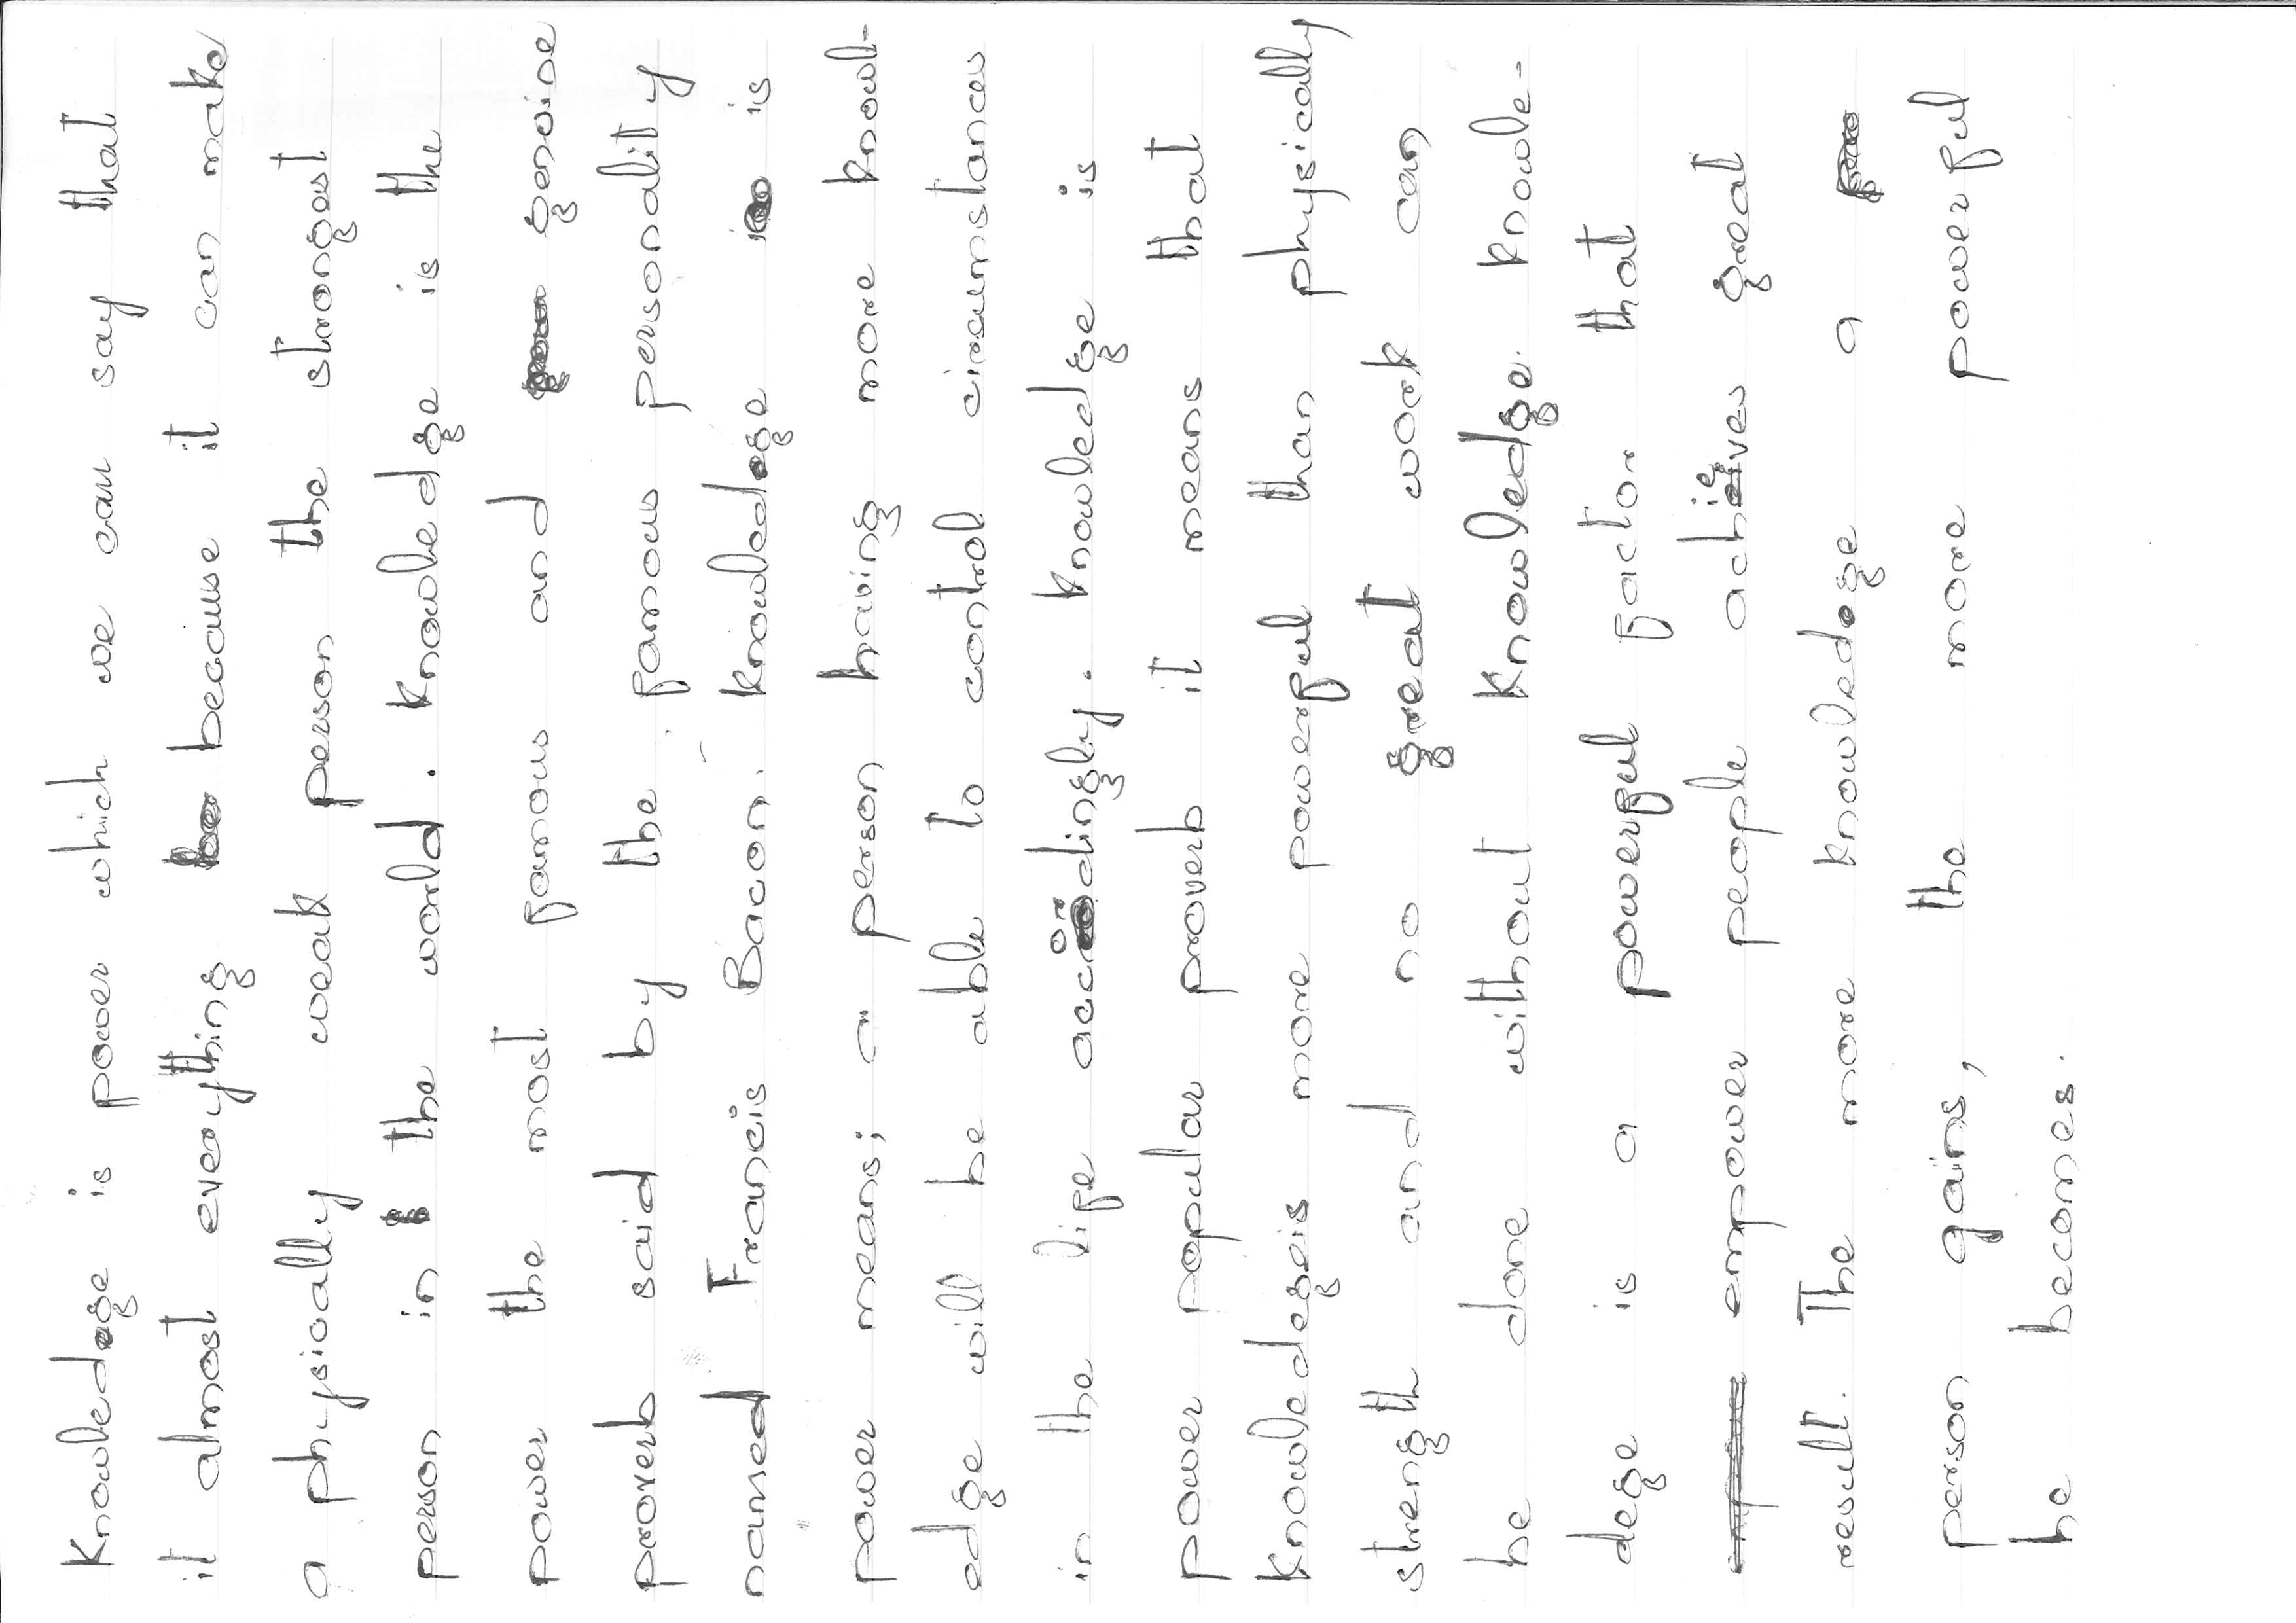 Knowledege is power which we can say that
it almost everything because it can make
a physically weak person the strongest
person in the world. Knowledge is the
power the most famous and genuine
proverb said by the famous personality
named Francis Bacon. Knowledege is
power means; a person having more knowl-
edge will be able to control circumstances
in the life accordingly. Knowledge is
power popular proverb it means that
Knowledegeis more powerful than physically
strength and no great work can
be done without Knowledge. Knowle-
dege is a powerful factor that
empower people achieves great
result. The more knowledege a
person gains, the more powerful
he becomes.